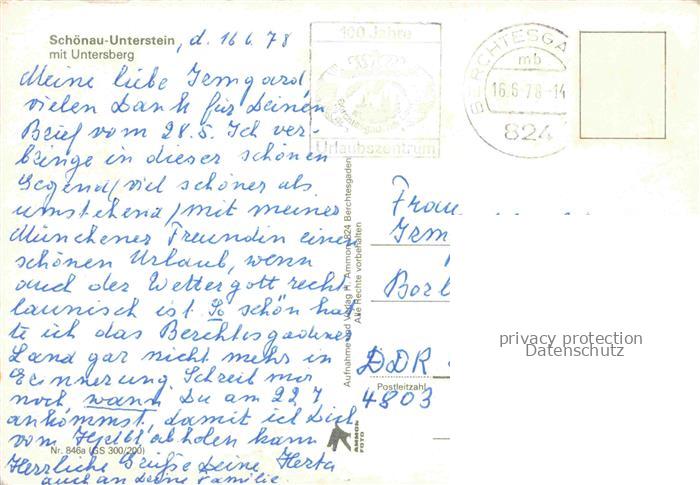 Schönau-Unterstein, d. 16.6.78
mit Untersberg
Meine liebe Irmgard,
vielen Dank für Deinen
Brief vom 28.5. Ich ver-
bringe in dieser schönen
Gegend (viel schöner als
umstehend) mit meiner
Münchener Freundin einen
schönen Urlaub, wenn
auch der Wettergott recht
launisch ist. So schön hat-
te ich das Berchtesgadener
Land gar nicht mehr in
Erinnerung. Schreib mir
noch wann Du am 22.7
ankommst, damit ich Dich
vom abholen kann
Nr. 846a (GS 300/200)
Herrliche Grüße Deine Herta
auch an Deine Familie.
100 Jahre
Urlaubszentrum
BERCHTESGA
mb
16.6.78-14
824
Aufnahme und Verlag H. Ammon, 824 Berchtesgaden
Alle Rechte vorbehalten
AMMON
FOTO
Frau
Irm
DDR
Postleitzahl
4803
privacy protection
Datenschutz